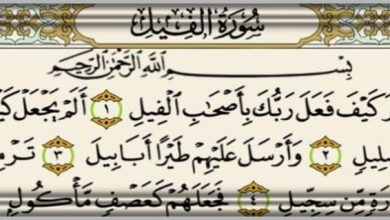 سُورَةُ الْفِيلِ
بِسْمِ اللَّهِ الرَّحْمَٰنِ الرَّحِيمِ
كَيْفَ فَعَلَ رَبُّكَ بِأَصْحَابِ الْفِيلِ ١ أَلَمْ يَجْعَلْ
٢ وَأَرْسَلَ عَلَيْهِمْ طَيْرًا أَبَابِيلَ ٣
مِّن سِجِّيلٍ ٤ فَجَعَلَهُمْ كَعَصْفٍ مَّأْكُولٍ